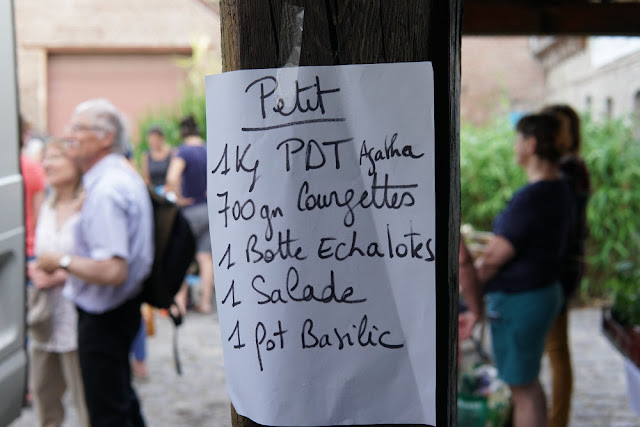 Petit
1Kg PDT Agatha
700gr Courgettes
1 Botte Echalotes
1 Salade
1 pot Basilic